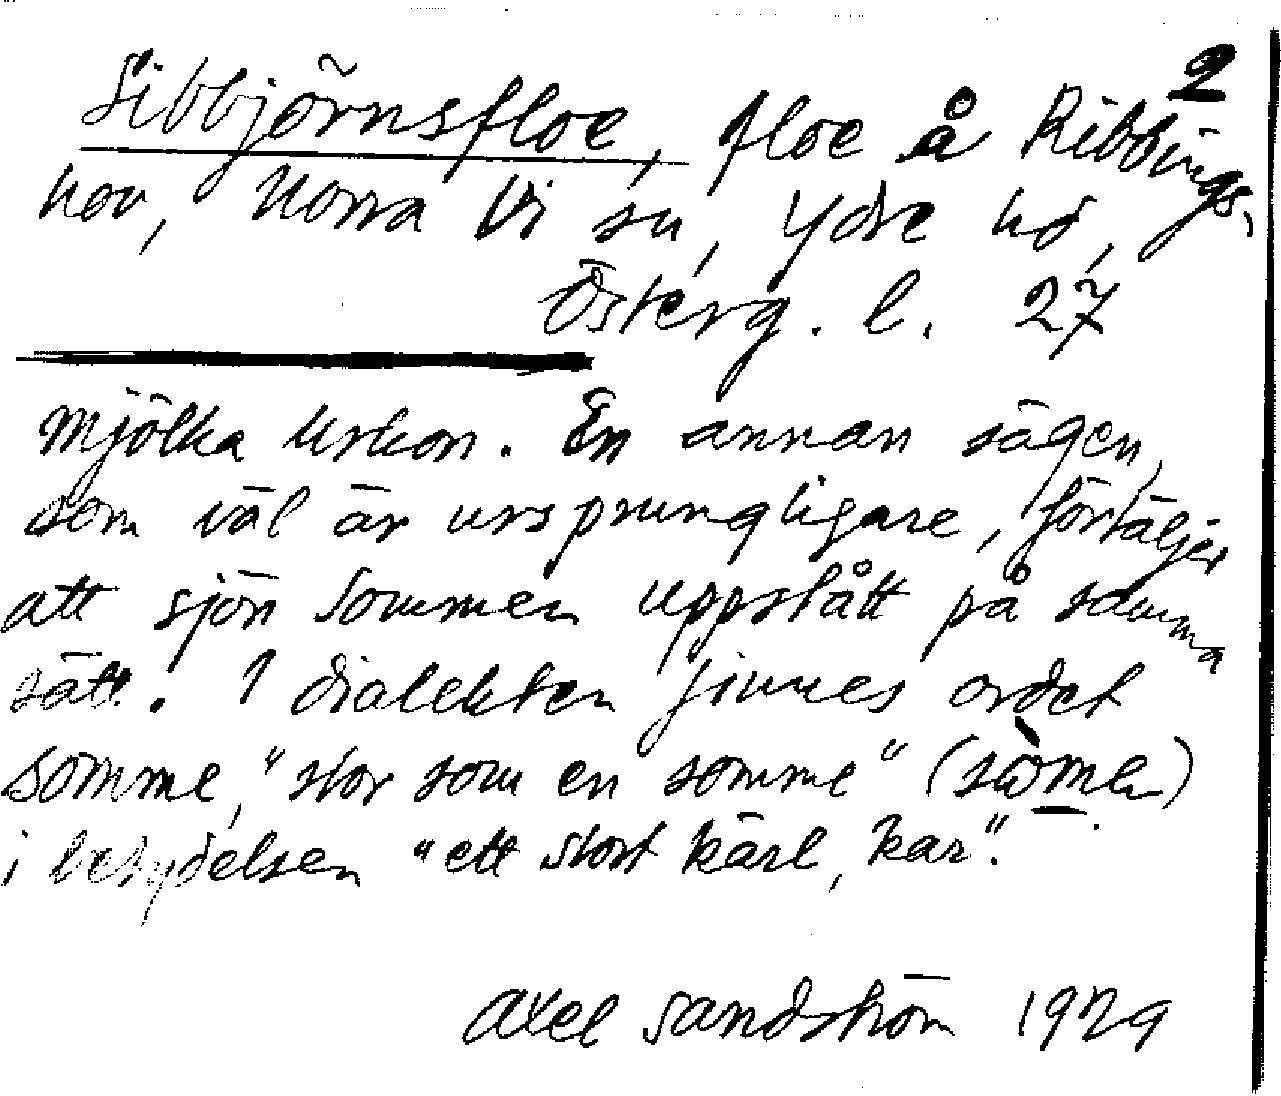 2
Sibbjörnsfloe, floe å Ribbings-
hov, Norra Vi sn, Ydre hd,
Österg. l. 27
mjölka urkon. En annan sägen,
som väl är ursprungligare, förtäljer
att sjön Sommen uppstått på samma
sätt. I dialekten finnes ordet
somme, "stor som en somme" (
i betydelsen "ett stort kärl, kar".
Axel Sandström 1929